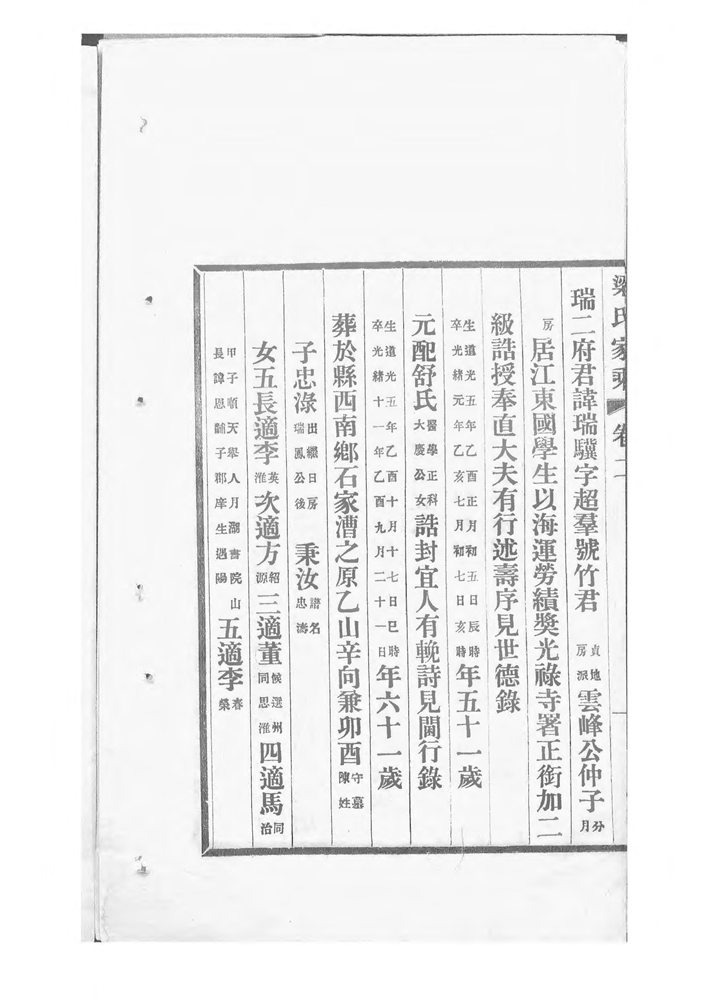 梁氏家乘 卷二
瑞二府君諱瑞驥字超羣號竹君貞地房派雲峰公仲子分月
房居江東國學生以海運勞績獎光祿寺署正銜加二
級誥授奉直大夫有行述壽序見世德錄
生道光五年乙酉正月初五日辰時卒光緒元年乙亥七月初七日亥時年五十一歲
元配舒氏醫學正科大慶公女誥封宜人有輓詩見閫行錄
生道光五年乙酉十月十七日巳時卒光緒十一年乙酉九月二十一日年六十一歲
葬於縣西南鄉石家漕之原乙山辛向兼卯酉守墓陳姓
子忠淥出繼日房瑞鳳公後 秉汝譜名忠濤
女五長適李英滙次適方紹源三適董候選州同思滙四適馬同治
甲子順天舉人月湖書院山長諱恩黼子郡庠生遇陽五適李春榮